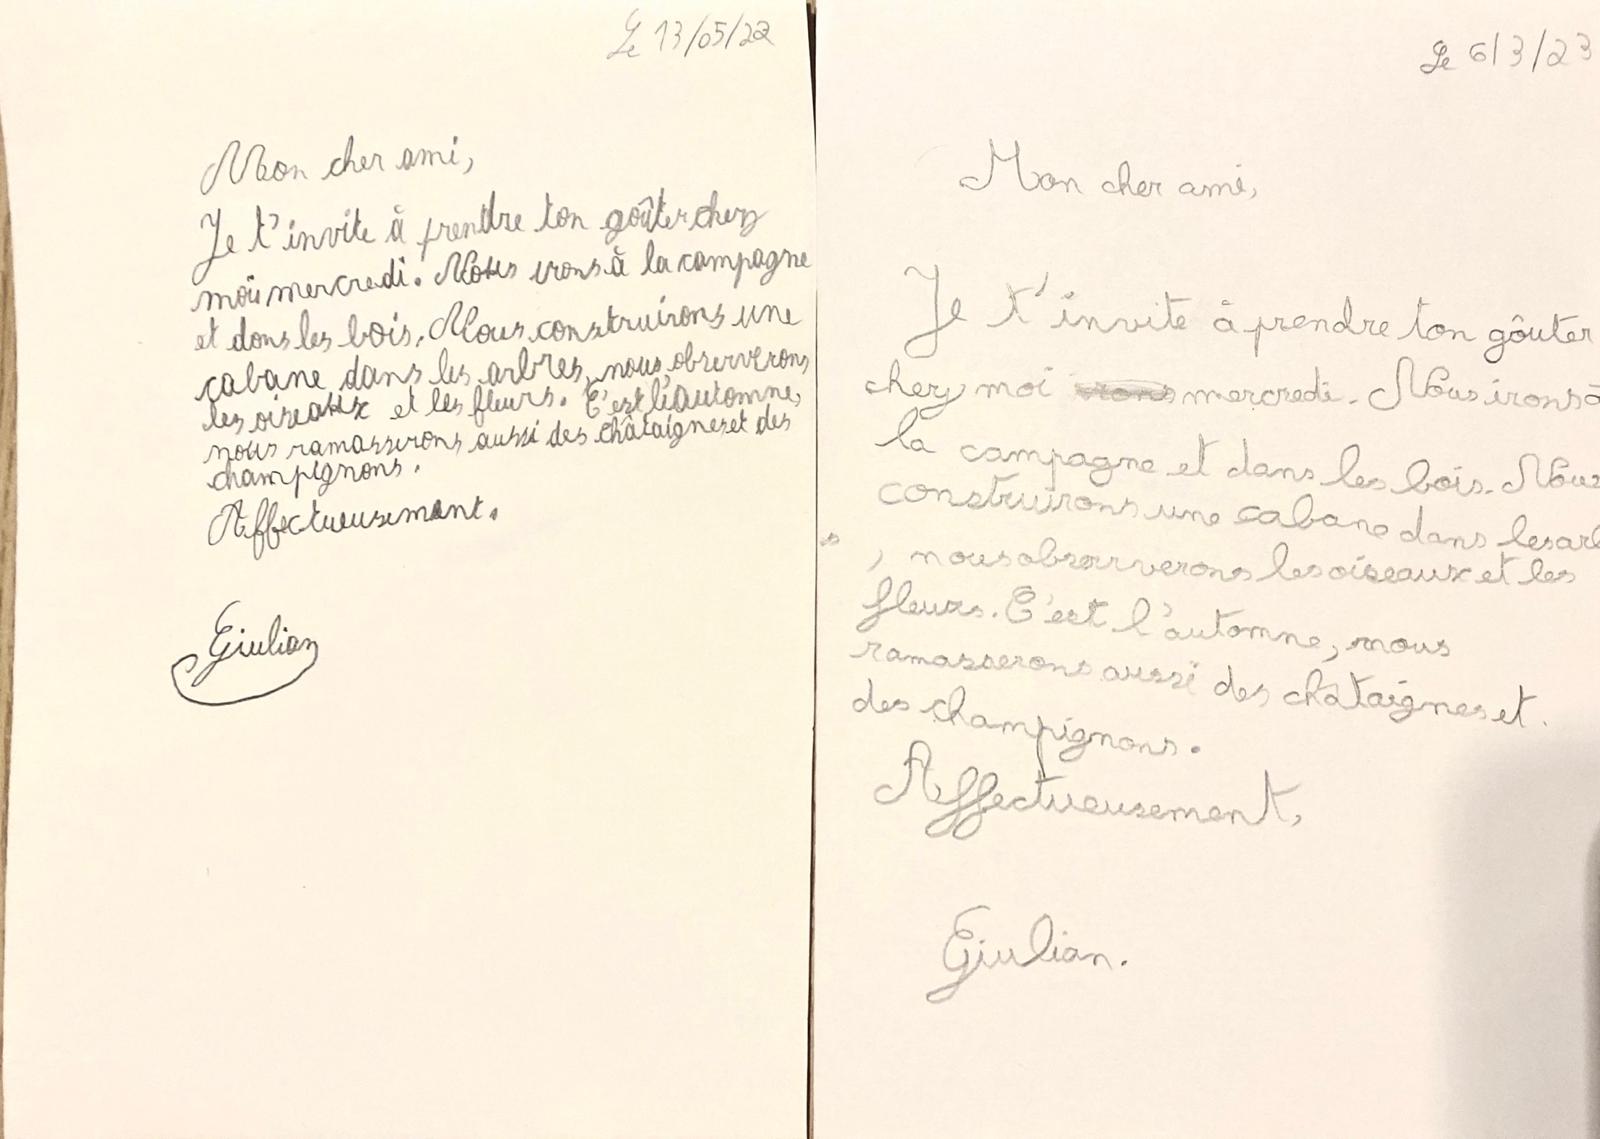 Le 13/05/22
Mon cher ami,
Je t'invite à prendre ton goûter chez
moi mercredi. Nous irons à la campagne
et dans les bois. Nous construirons une
cabane dans les arbres, nous observerons
les oiseaux et les fleurs. C'est l'automne,
nous ramasserons aussi des châtaignes et des
champignons.
Affectueusement.
Giulian
Le 6/3/23
Mon cher ami,
Je t'invite à prendre ton goûter
chez moi mercredi. Nous irons à
la campagne et dans les bois. Nous
construirons une cabane dans les arb
, nous observerons les oiseaux et les
fleurs. C'est l'automne, nous
ramasserons aussi des châtaignes et
des champignons.
Affectueusement,
Giulian.